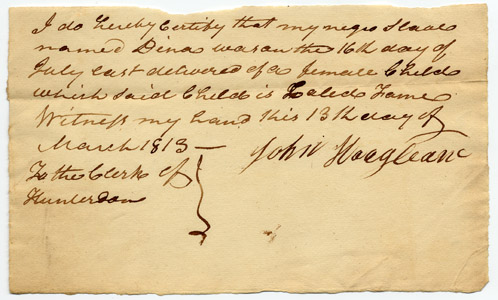 I do hereby Certify that my negro Slave
named Dina was on the 16th day of
July last delivered of a female Child
which said Child is Called Fame
Witness my hand this 13th day of
March 1813 —
John Hoagland
To the Clerk of
Hunterdon